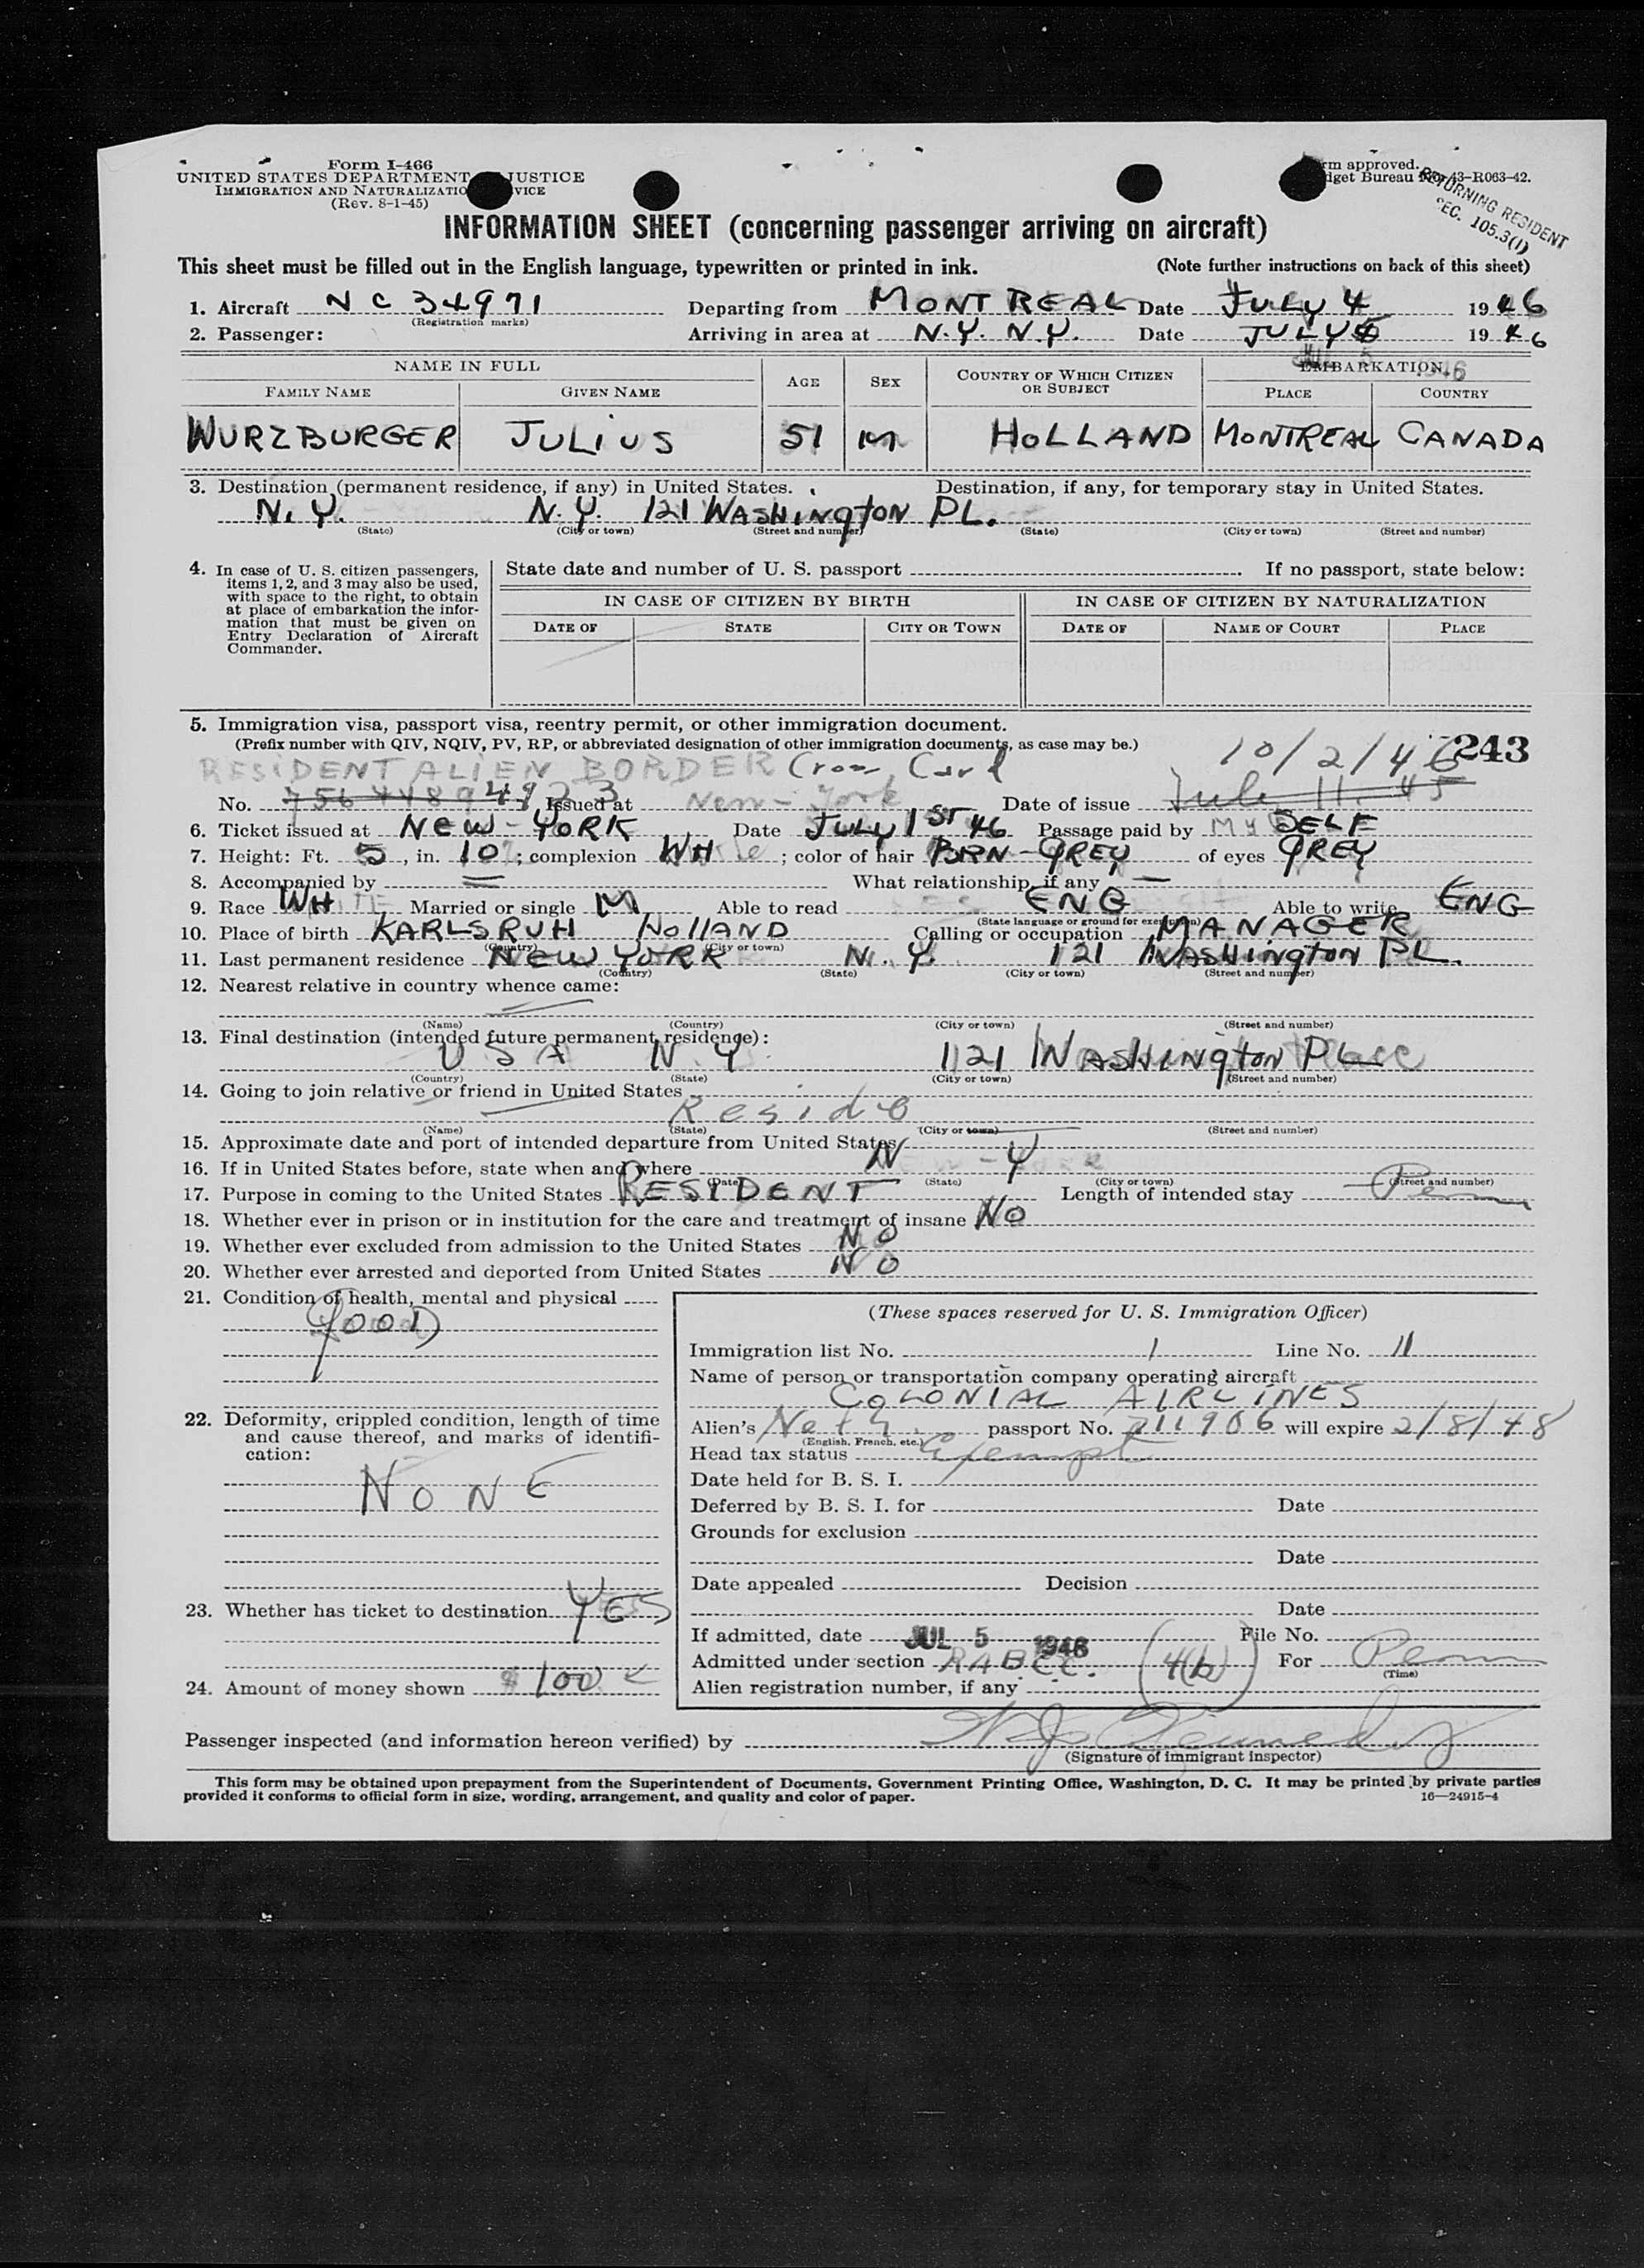 Form I-466
UNITED STATES DEPARTMENT JUSTICE
IMMIGRATION AND NATURALIZATIO VICE
(Rev. 8-1-45)
rm approved.
dget Bureau No. 43-R063-42.
RETURNING RESIDENT
SEC. 105.3(1)
INFORMATION SHEET (concerning passenger arriving on aircraft)
This sheet must be filled out in the English language, typewritten or printed in ink. (Note further instructions on back of this sheet)
1. Aircraft NC 34971 Departing from MONTREAL Date JULY 4 1946
(Registration marks)
2. Passenger: Arriving in area at N.Y. N.Y. Date JULY 5 1946
NAME IN FULL AGE SEX COUNTRY OF WHICH CITIZEN OR SUBJECT EMBARKATION
FAMILY NAME GIVEN NAME PLACE COUNTRY
WURZBURGER JULIUS 51 M HOLLAND MONTREAL CANADA
3. Destination (permanent residence, if any) in United States. Destination, if any, for temporary stay in United States.
N.Y. N.Y. 121 WASHINgTON PL.
(State) (City or town) (Street and number) (State) (City or town) (Street and number)
4. In case of U. S. citizen passengers, items 1, 2, and 3 may also be used, with space to the right, to obtain at place of embarkation the information that must be given on Entry Declaration of Aircraft Commander.
State date and number of U. S. passport If no passport, state below:
IN CASE OF CITIZEN BY BIRTH IN CASE OF CITIZEN BY NATURALIZATION
DATE OF STATE CITY OR TOWN DATE OF NAME OF COURT PLACE
5. Immigration visa, passport visa, reentry permit, or other immigration document.
(Prefix number with QIV, NQIV, PV, RP, or abbreviated designation of other immigration documents, as case may be.)
10/2/46 243
RESIDENT ALIEN BORDER Cross Card
No. Issued at New-York Date of issue July 11. 45
6. Ticket issued at NEW-YORK Date JULY 1ST 46 Passage paid by MYSELF
7. Height: Ft. 5, in. 10; complexion WH; color of hair BRN-GREY of eyes GREY
8. Accompanied by = What relationship, if any —
9. Race WHITE Married or single M Able to read ENG Able to write ENG
(State language or ground for exemption)
10. Place of birth KARLSRUH HOllAND Calling or occupation MANAGER
(Country) (City or town)
11. Last permanent residence NEW YORK N.Y. 121 WASHINgTON PL.
(Country) (State) (City or town) (Street and number)
12. Nearest relative in country whence came:
(Name) (Country) (City or town) (Street and number)
13. Final destination (intended future permanent residence):
USA N.Y 121 WASHINgTON PLace
(Country) (State) (City or town) (Street and number)
14. Going to join relative or friend in United States
Reside
(Name) (State) (City or town) (Street and number)
15. Approximate date and port of intended departure from United States
16. If in United States before, state when and where N-Y
(Date) (State) (City or town) (Street and number)
17. Purpose in coming to the United States RESIDENT Length of intended stay Perm
18. Whether ever in prison or in institution for the care and treatment of insane NO
19. Whether ever excluded from admission to the United States NO
20. Whether ever arrested and deported from United States NO
21. Condition of health, mental and physical
GOOD
22. Deformity, crippled condition, length of time and cause thereof, and marks of identification:
NONE
23. Whether has ticket to destination YES
24. Amount of money shown $100
(These spaces reserved for U. S. Immigration Officer)
Immigration list No. 1 Line No. 11
Name of person or transportation company operating aircraft
COLONIAL AIRLINES
Alien's Neth. passport No. 211906 will expire 2/8/48
(English, French, etc.)
Head tax status Exempt
Date held for B. S. I.
Deferred by B. S. I. for Date
Grounds for exclusion
Date
Date appealed Decision
Date
If admitted, date JUL 5 1946 File No.
Admitted under section RABCC. (4(b)) For Perm
(Time)
Alien registration number, if any
Passenger inspected (and information hereon verified) by
(Signature of immigrant inspector)
This form may be obtained upon prepayment from the Superintendent of Documents, Government Printing Office, Washington, D. C. It may be printed by private parties
provided it conforms to official form in size, wording, arrangement, and quality and color of paper. 16—24915-4